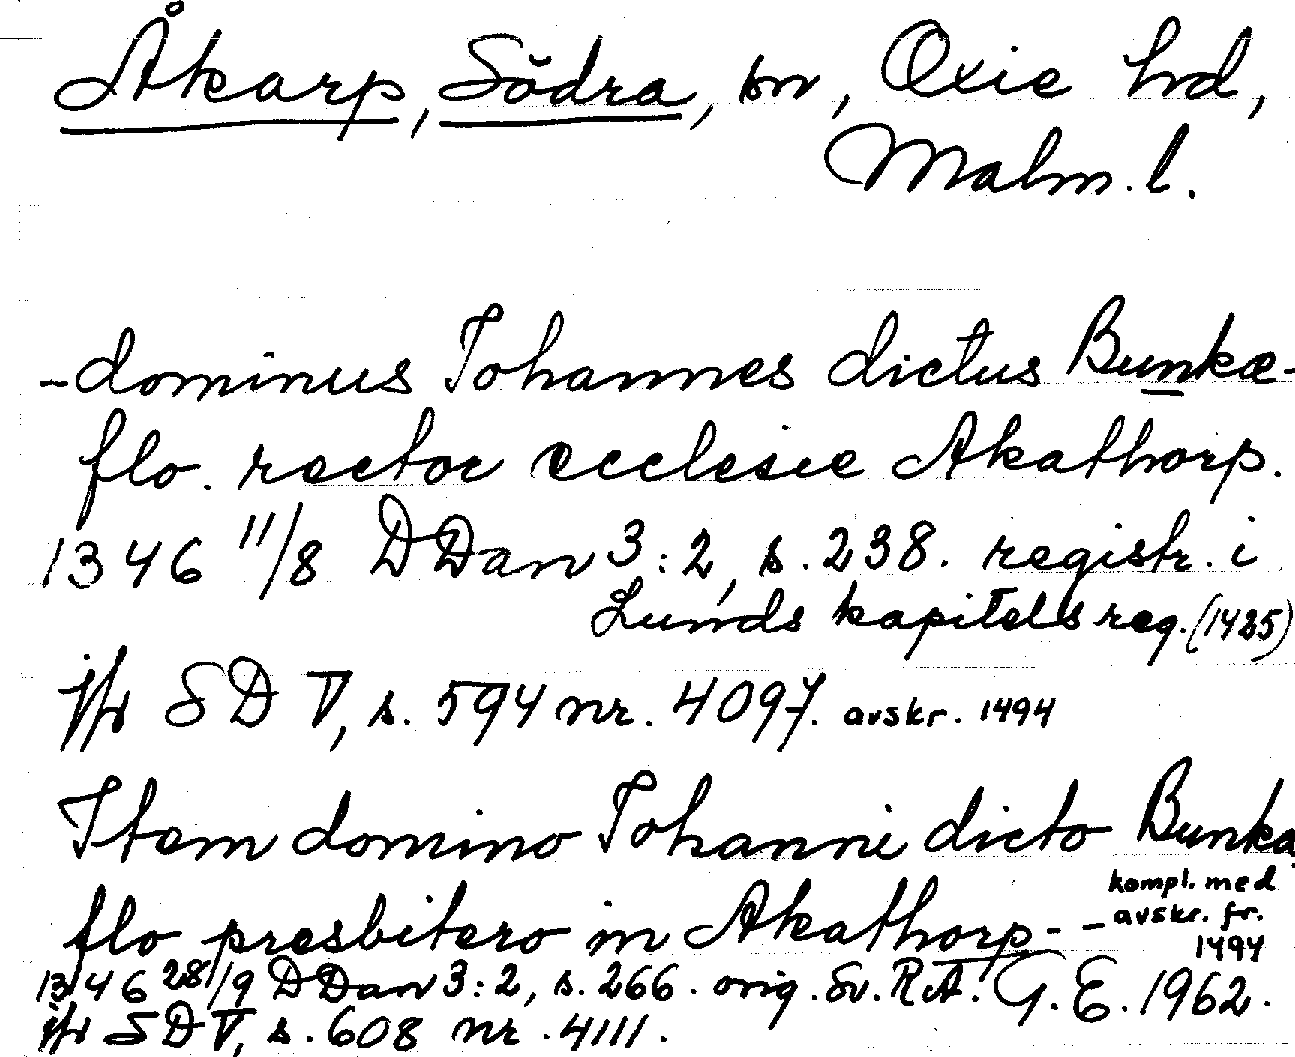 Åkarp, Södra, sn, Oxie hd,
Malm. l.
-dominus Johannes dictus Bunkæ-
flo. rector ecclesie Akathorp.
1346 11/8 DDan 3:2, s. 238. registr. i
Lunds kapitels reg. (1425)
jfr SD V, s. 594 nr. 4097. avskr. 1494
Item domino Johanni dicto Bunka
flo presbitero in Akathorp - -
kompl. med
avskr. fr.
1494
1346 28/9 DDan 3:2, s. 266. orig. Sv. R.A. G. E. 1962.
jfr SD V, s. 608 nr. 4111.